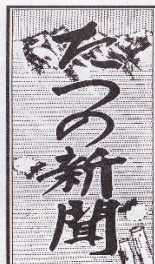 たつの新聞